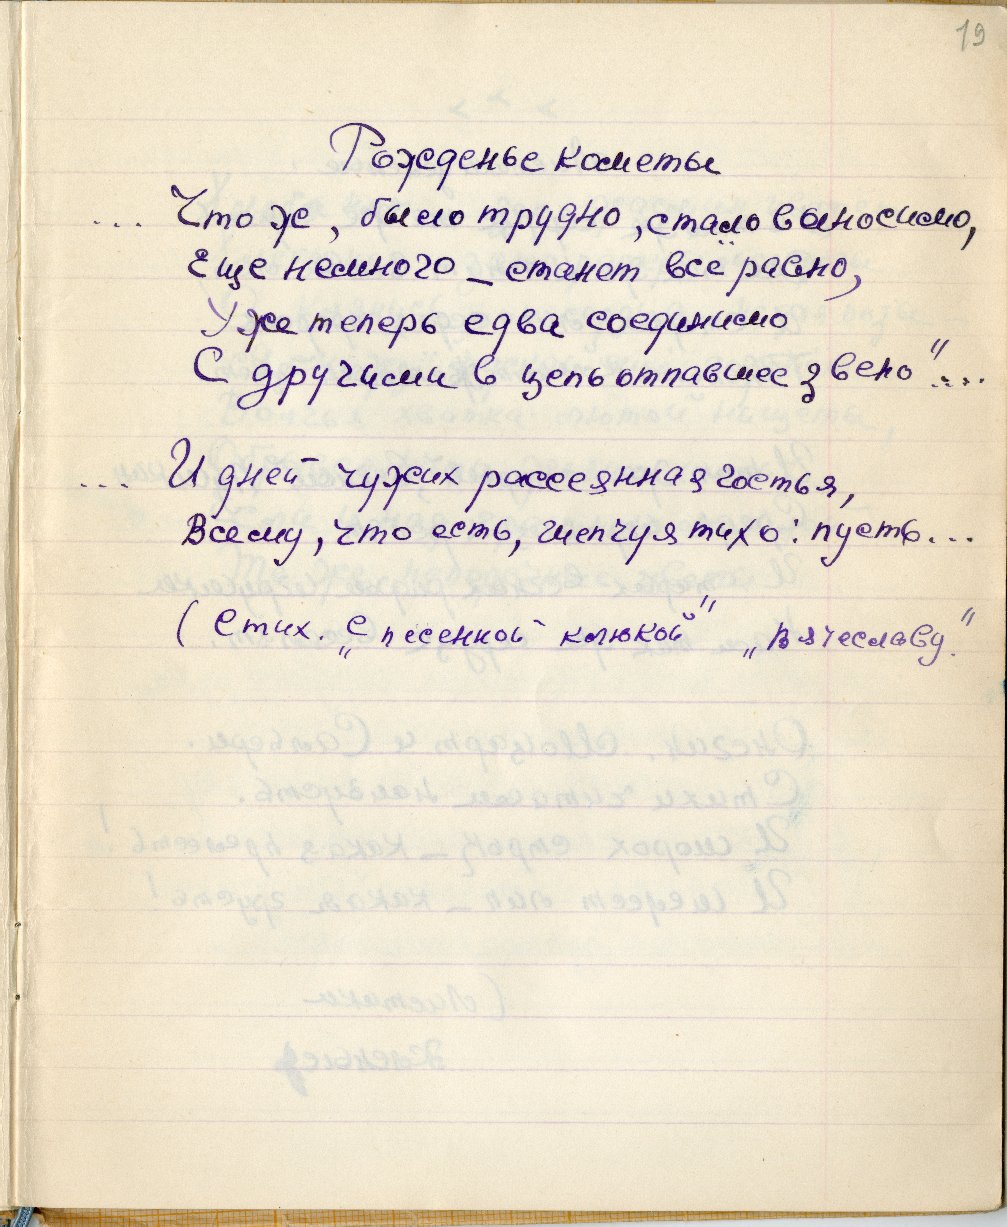 19
Рожденье кометы
... Что ж, было трудно, стало выносимо,
Еще немного – станет всё равно,
Уже теперь едва соединимо
С другими в цепь отпавшее звено"....
... И дней чужих рассеянная гостья,
Всему, что есть, шепчуя тихо: пусть...
(Стих. „С песенной клюкой" „Вячеславу."